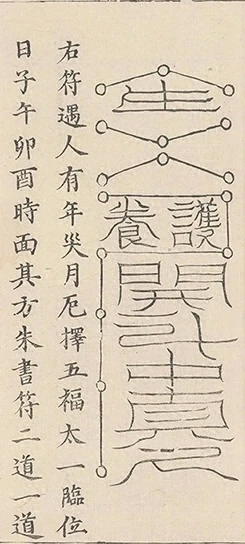 生
開
中
右符遇人有年災月厄擇五福太一臨位
日子午卯酉時面其方朱書符二道一道